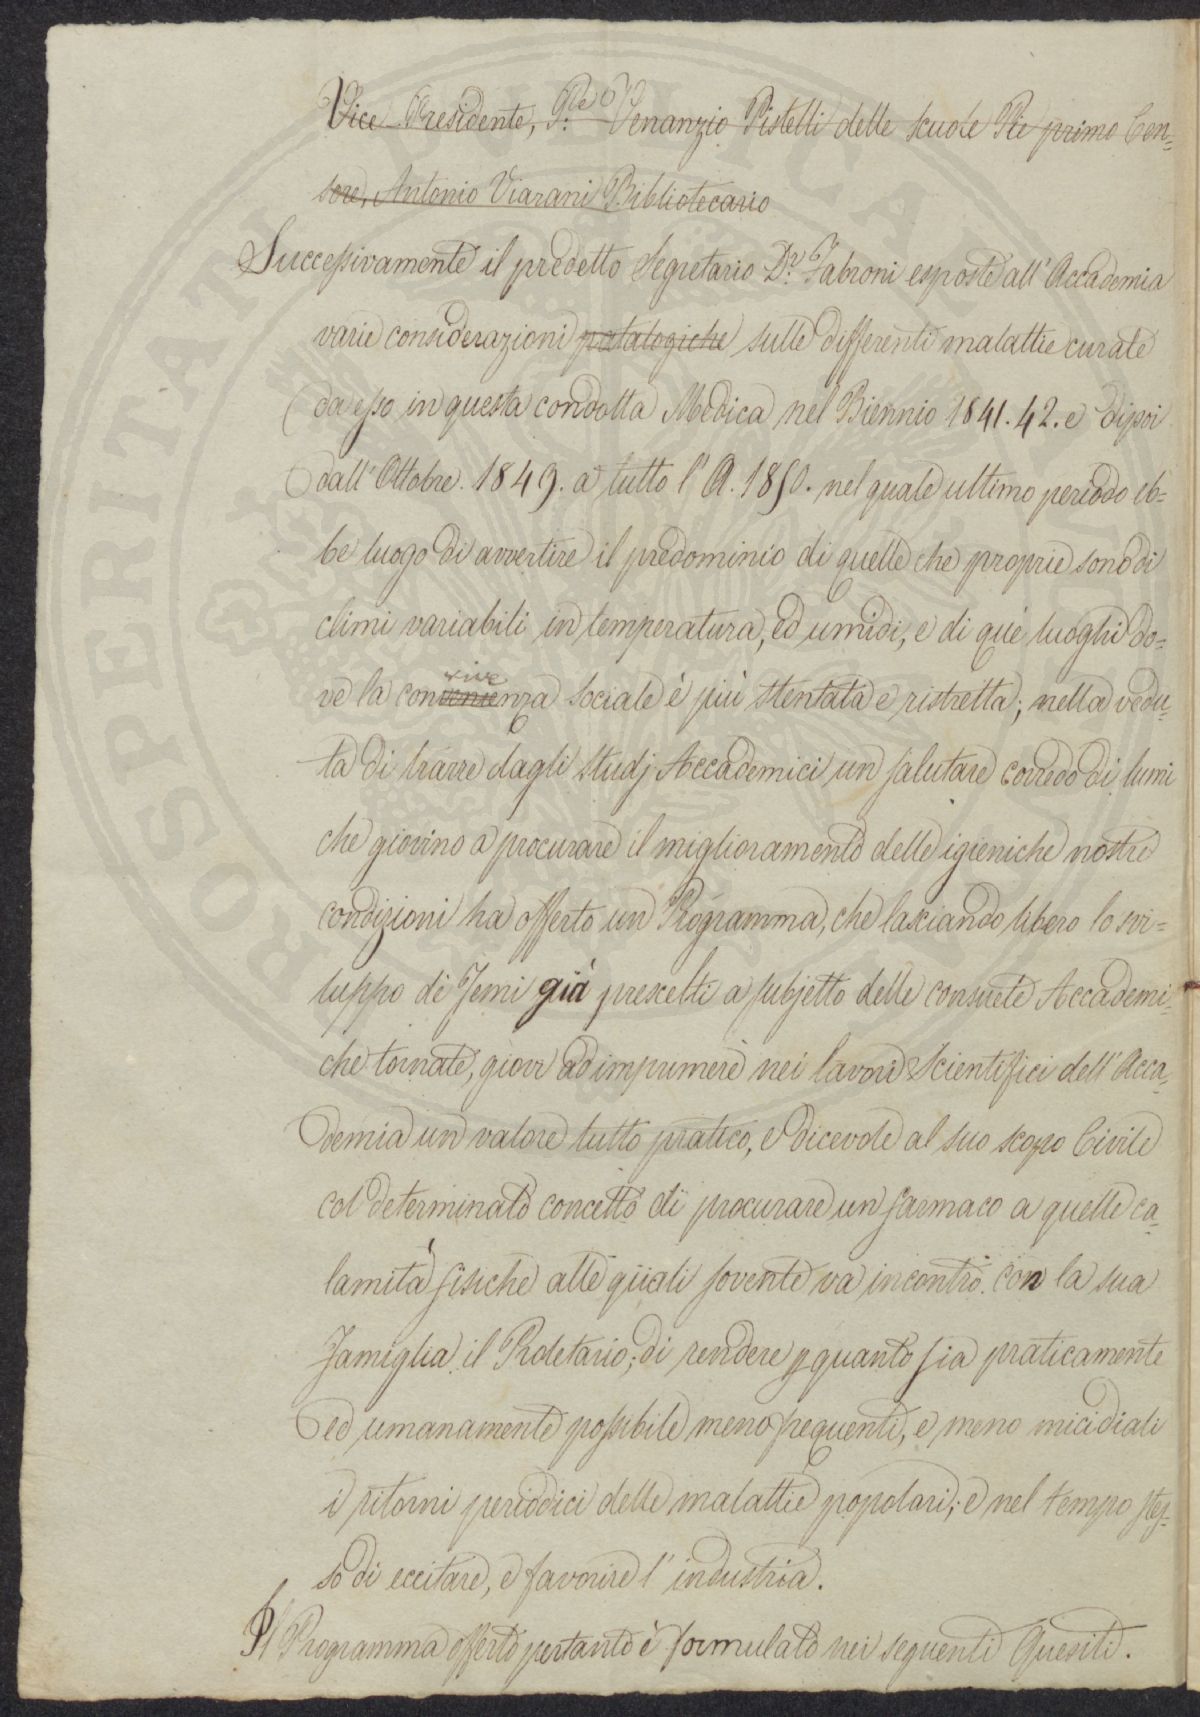 Vice Presidente, P.re Venanzio Pistelli delle Scuole Pie primo Cen=
sore, Antonio Viarani Bibliotecario
Successivamente il predetto Segretario D.r Fabroni espose all'Accademia
varie considerazioni patalogiche sulle differenti malattie curate
da esso in questa condotta Medica nel Biennio 1841.42. e dipoi
dall'Ottobre. 1849. a tutto l'A. 1850. nel quale ultimo periodo eb=
be luogo di avvertire il predominio di quelle che proprie sono di
climi variabili in temperatura, ed umidi, e di que' luoghi do=
vive
ve la convenienza sociale è più stentata e ristretta; nella vedu=
ta di trarre dagli studj Accademici un salutare corredo di lumi
che giovino a procurare il miglioramento delle igieniche nostre
condizioni ha offerto un Programma, che lasciando libero lo svi=
luppo de' Temi già prescelti a subjetto delle consuete Accademi=
che tornate, giovi ad imprimere nei lavori Scientifici dell'Acca=
demia un valore tutto pratico, e dicevole al suo scopo Civile
col determinato concetto di procurare un farmaco a quelle ca=
lamità fisiche alle quali sovente va incontro con la sua
Famiglia il Proletario; di rendere p quanto sia praticamente
ed umanamente possibile meno frequenti, e meno micidiali
i ritorni periodici delle malattie popolari; e nel tempo stes=
so di eccitare, e favorire l'industria.
Il Programma offerto pertanto è formulato nei seguenti Quesiti.
PROSPERITATI PUBLICAE